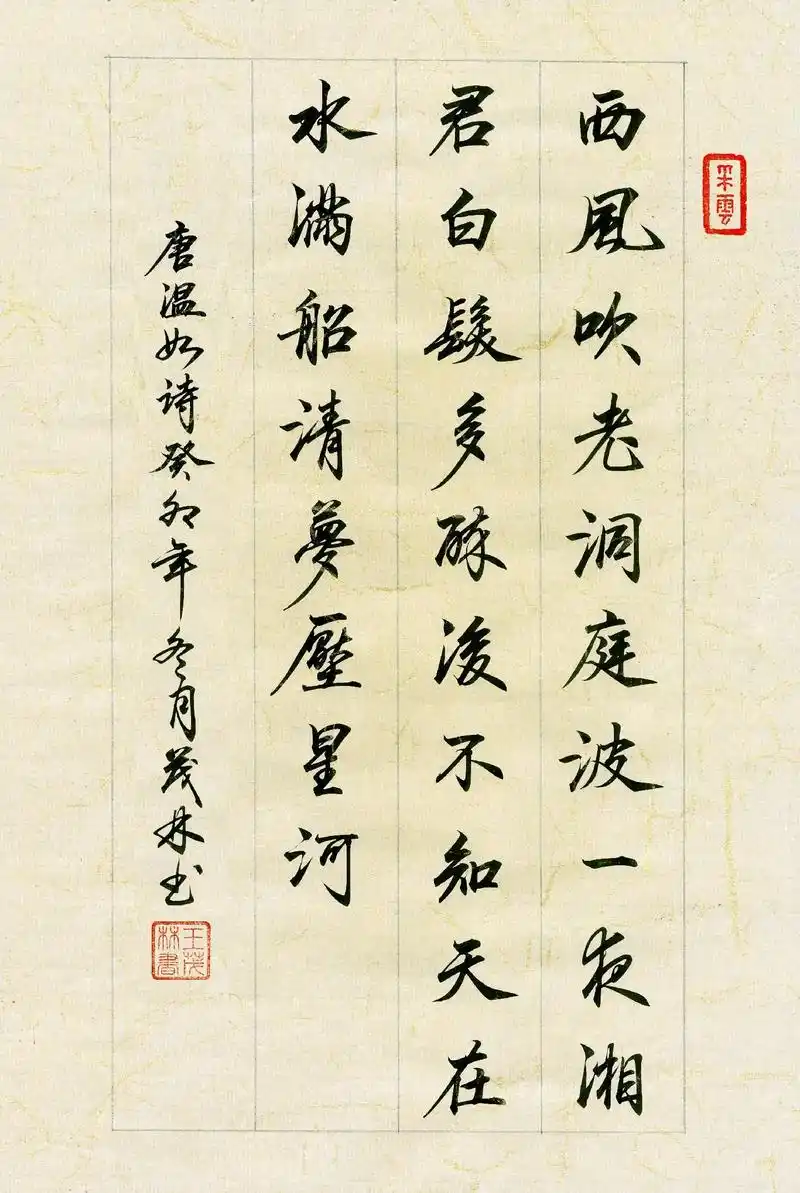 采雲
西風吹老洞庭波一夜湘
君白髮多醉後不知天在
水滿船清夢壓星河
唐温如诗癸卯年冬月茂林书
王茂林書